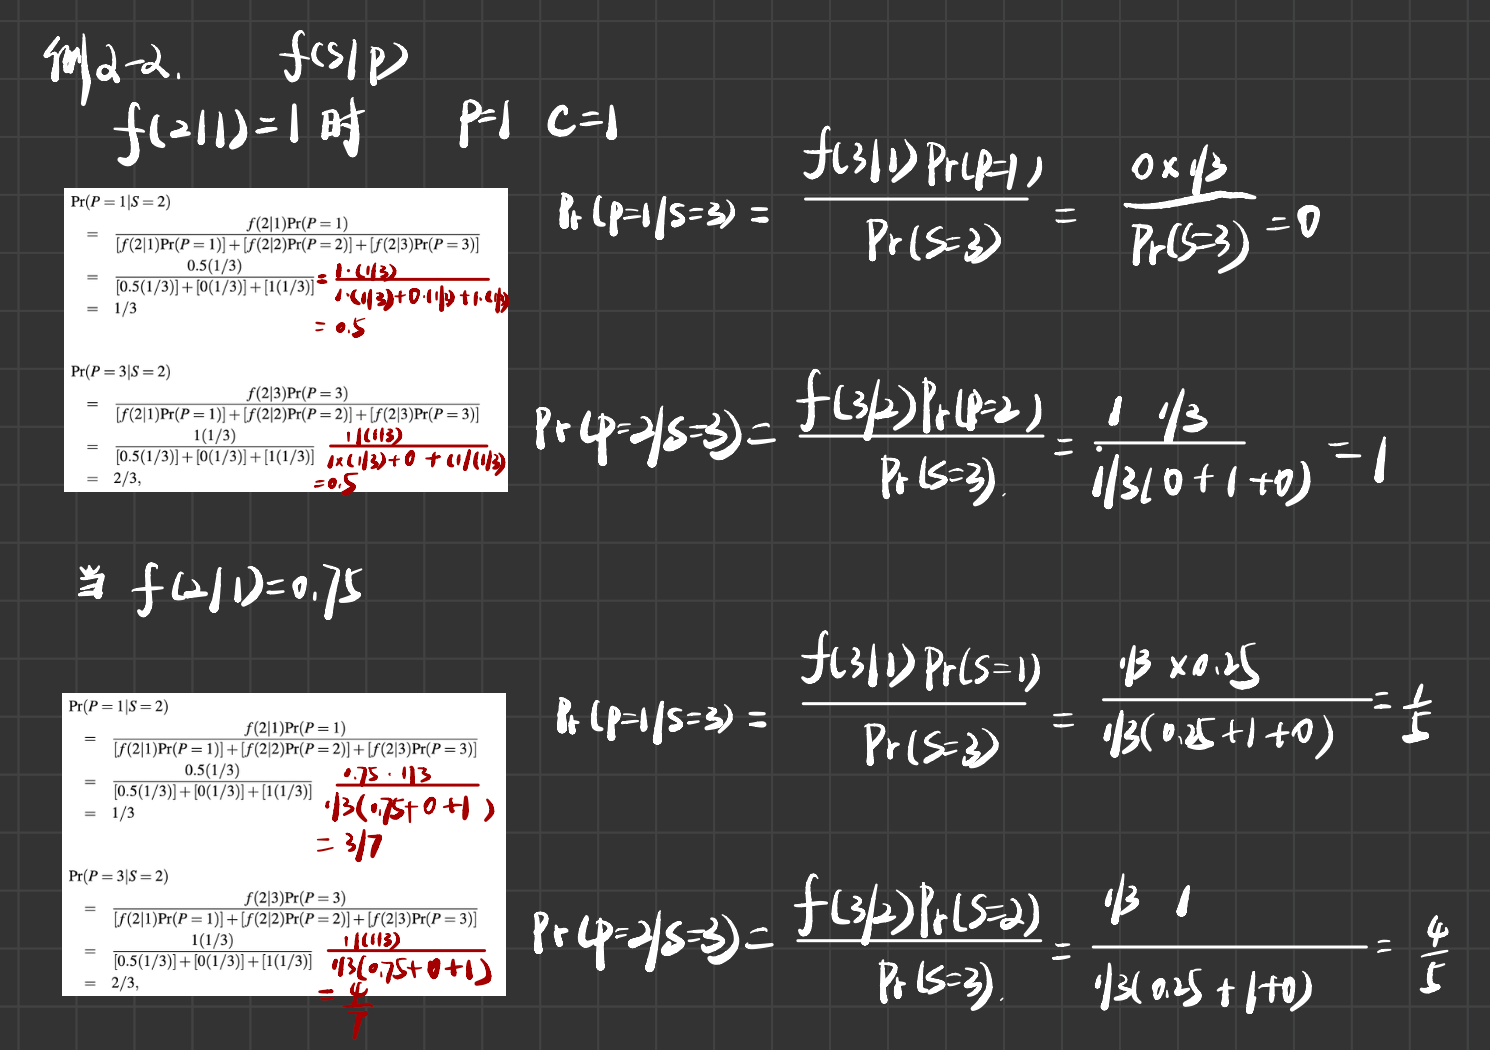 例2-2. f(S|P)
f(2|1)=1时 P=1 C=1
Pr(P=1|S=2)
= f(2|1)Pr(P=1) / [f(2|1)Pr(P=1)]+[f(2|2)Pr(P=2)]+[f(2|3)Pr(P=3)]
= 0.5(1/3) / [0.5(1/3)]+[0(1/3)]+[1(1/3)] = 1·(1/3) / 1·(1/3)+0·(1/3)+1·(1/3)
= 1/3
= 0.5
Pr(P=3|S=2)
= f(2|3)Pr(P=3) / [f(2|1)Pr(P=1)]+[f(2|2)Pr(P=2)]+[f(2|3)Pr(P=3)]
= 1(1/3) / [0.5(1/3)]+[0(1/3)]+[1(1/3)] 1(1/3) / 1×(1/3)+0+(1/(1/3)
= 2/3,
=0.5
Pr(P=1/S=3) = f(3|1)Pr(P=1) / Pr(S=3) = 0×1/3 / Pr(S=3) =0
Pr(P=2/S=3)= f(3/2)Pr(P=2) / Pr(S=3). = 1 1/3 / 1/3(0+1+0) =1
当 f(2/1)=0.75
Pr(P=1|S=2)
= f(2|1)Pr(P=1) / [f(2|1)Pr(P=1)]+[f(2|2)Pr(P=2)]+[f(2|3)Pr(P=3)]
= 0.5(1/3) / [0.5(1/3)]+[0(1/3)]+[1(1/3)] 0.75·1/3 / 1/3(0.75+0+1)
= 1/3
= 3/7
Pr(P=3|S=2)
= f(2|3)Pr(P=3) / [f(2|1)Pr(P=1)]+[f(2|2)Pr(P=2)]+[f(2|3)Pr(P=3)]
= 1(1/3) / [0.5(1/3)]+[0(1/3)]+[1(1/3)] 1(1/3) / 1/3(0.75+0+1)
= 2/3,
= 4/7
Pr(P=1/S=3) = f(3|1)Pr(S=1) / Pr(S=3) = 1/3×0.25 / 1/3(0.25+1+0) = 1/5
Pr(P=2/S=3)= f(3/2)Pr(S=2) / Pr(S=3). = 1/3 1 / 1/3(0.25+1+0) = 4/5